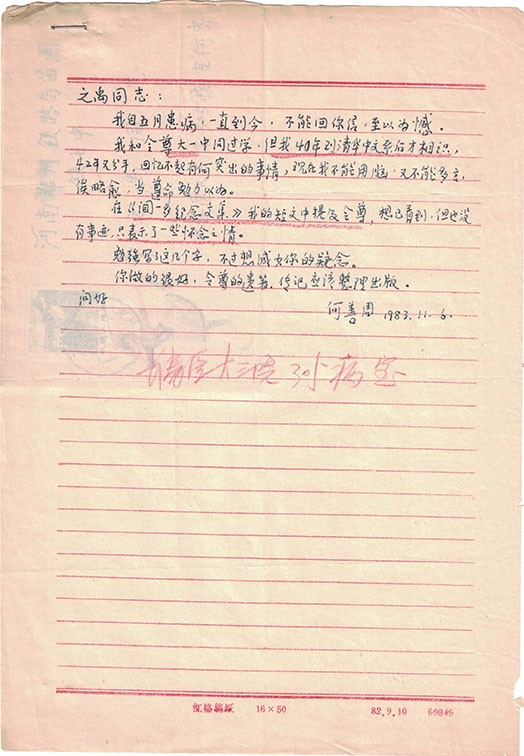 之禹同志：
我自五月患病，一直到今，不能回你信，至以为憾。
我和令尊大一中同过学，但我40年到清华中文系后才相识，
42年又分手，回忆不起有何突出的事情，现在我不能用脑，又不能多言，
俟略愈，当尊命勉力以为。
在《闻一多纪念文集》我的短文中提及令尊，想已看到，但也没
有事迹，只表示了一些怀念之情。
勉强写了这几个字，不过想减少你的疑念。
你做的很好，令尊的遗著、传记应该整理出版。
问好
何善周 1983.11.6.
医大三院 病室
红格稿纸 16×50 82.9.10